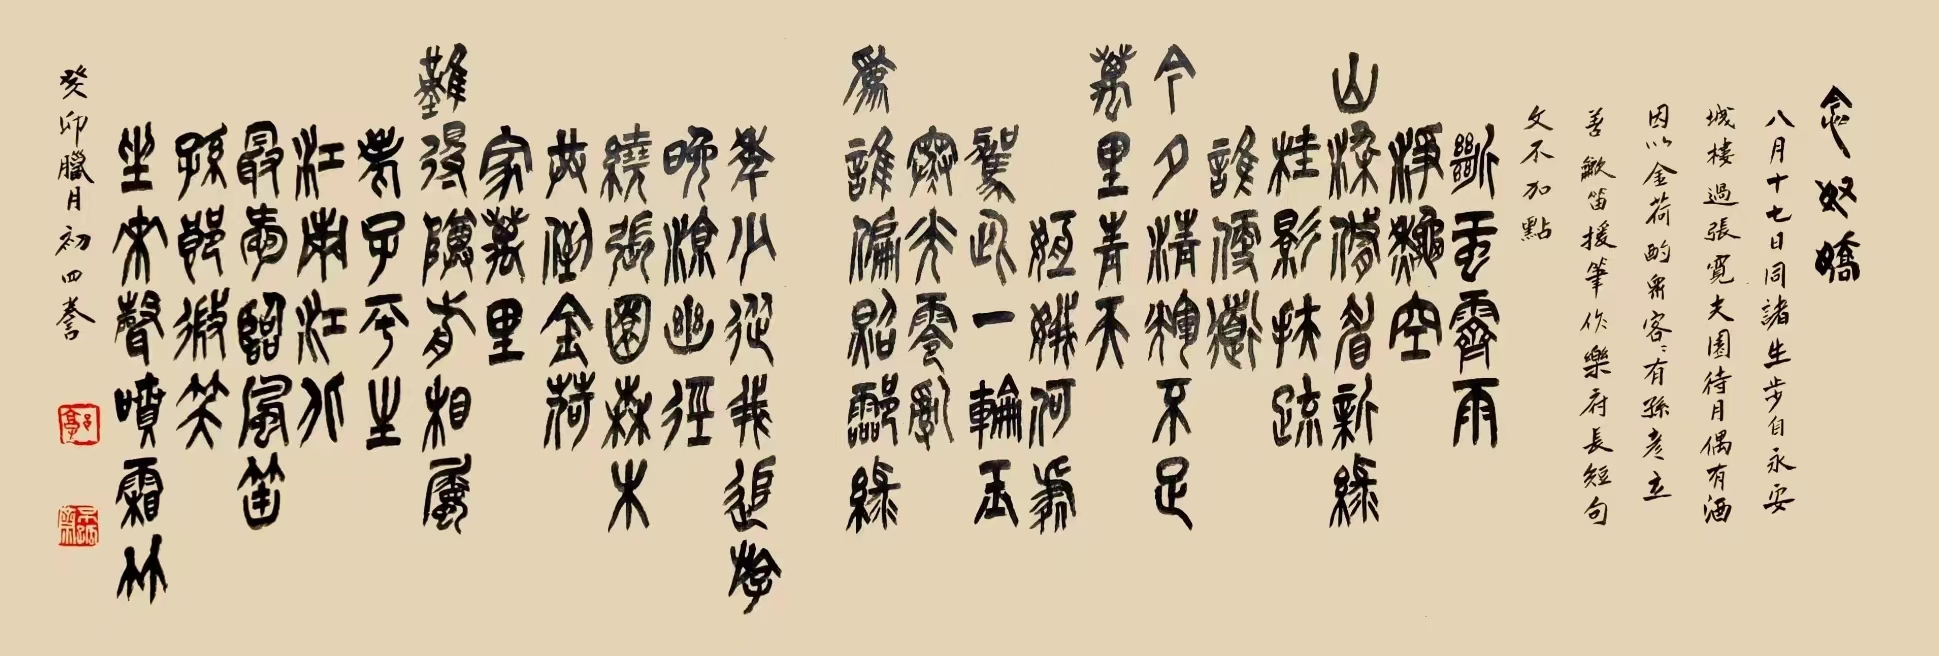 念奴嬌
八月十七日同諸生步自永安
城樓過張寬夫園待月偶有酒
因以金荷酌眾客〻有孫彥立
善歗笛援筆作樂府長短句
文不加點
斷虹霽雨
淨秋空
山染修眉新綠
桂影扶疏
誰便道
今夕清輝不足
萬里青天
姮娥何處
駕此一輪玉
寒光零亂
為誰偏照醽綠
年少從我追游
晚涼幽徑
繞張園森木
共倒金荷
家萬里
難得尊前相屬
老子平生
江南江北
最愛臨風笛
孫郎微笑
坐來聲噴霜竹
癸卯臘月初四誊